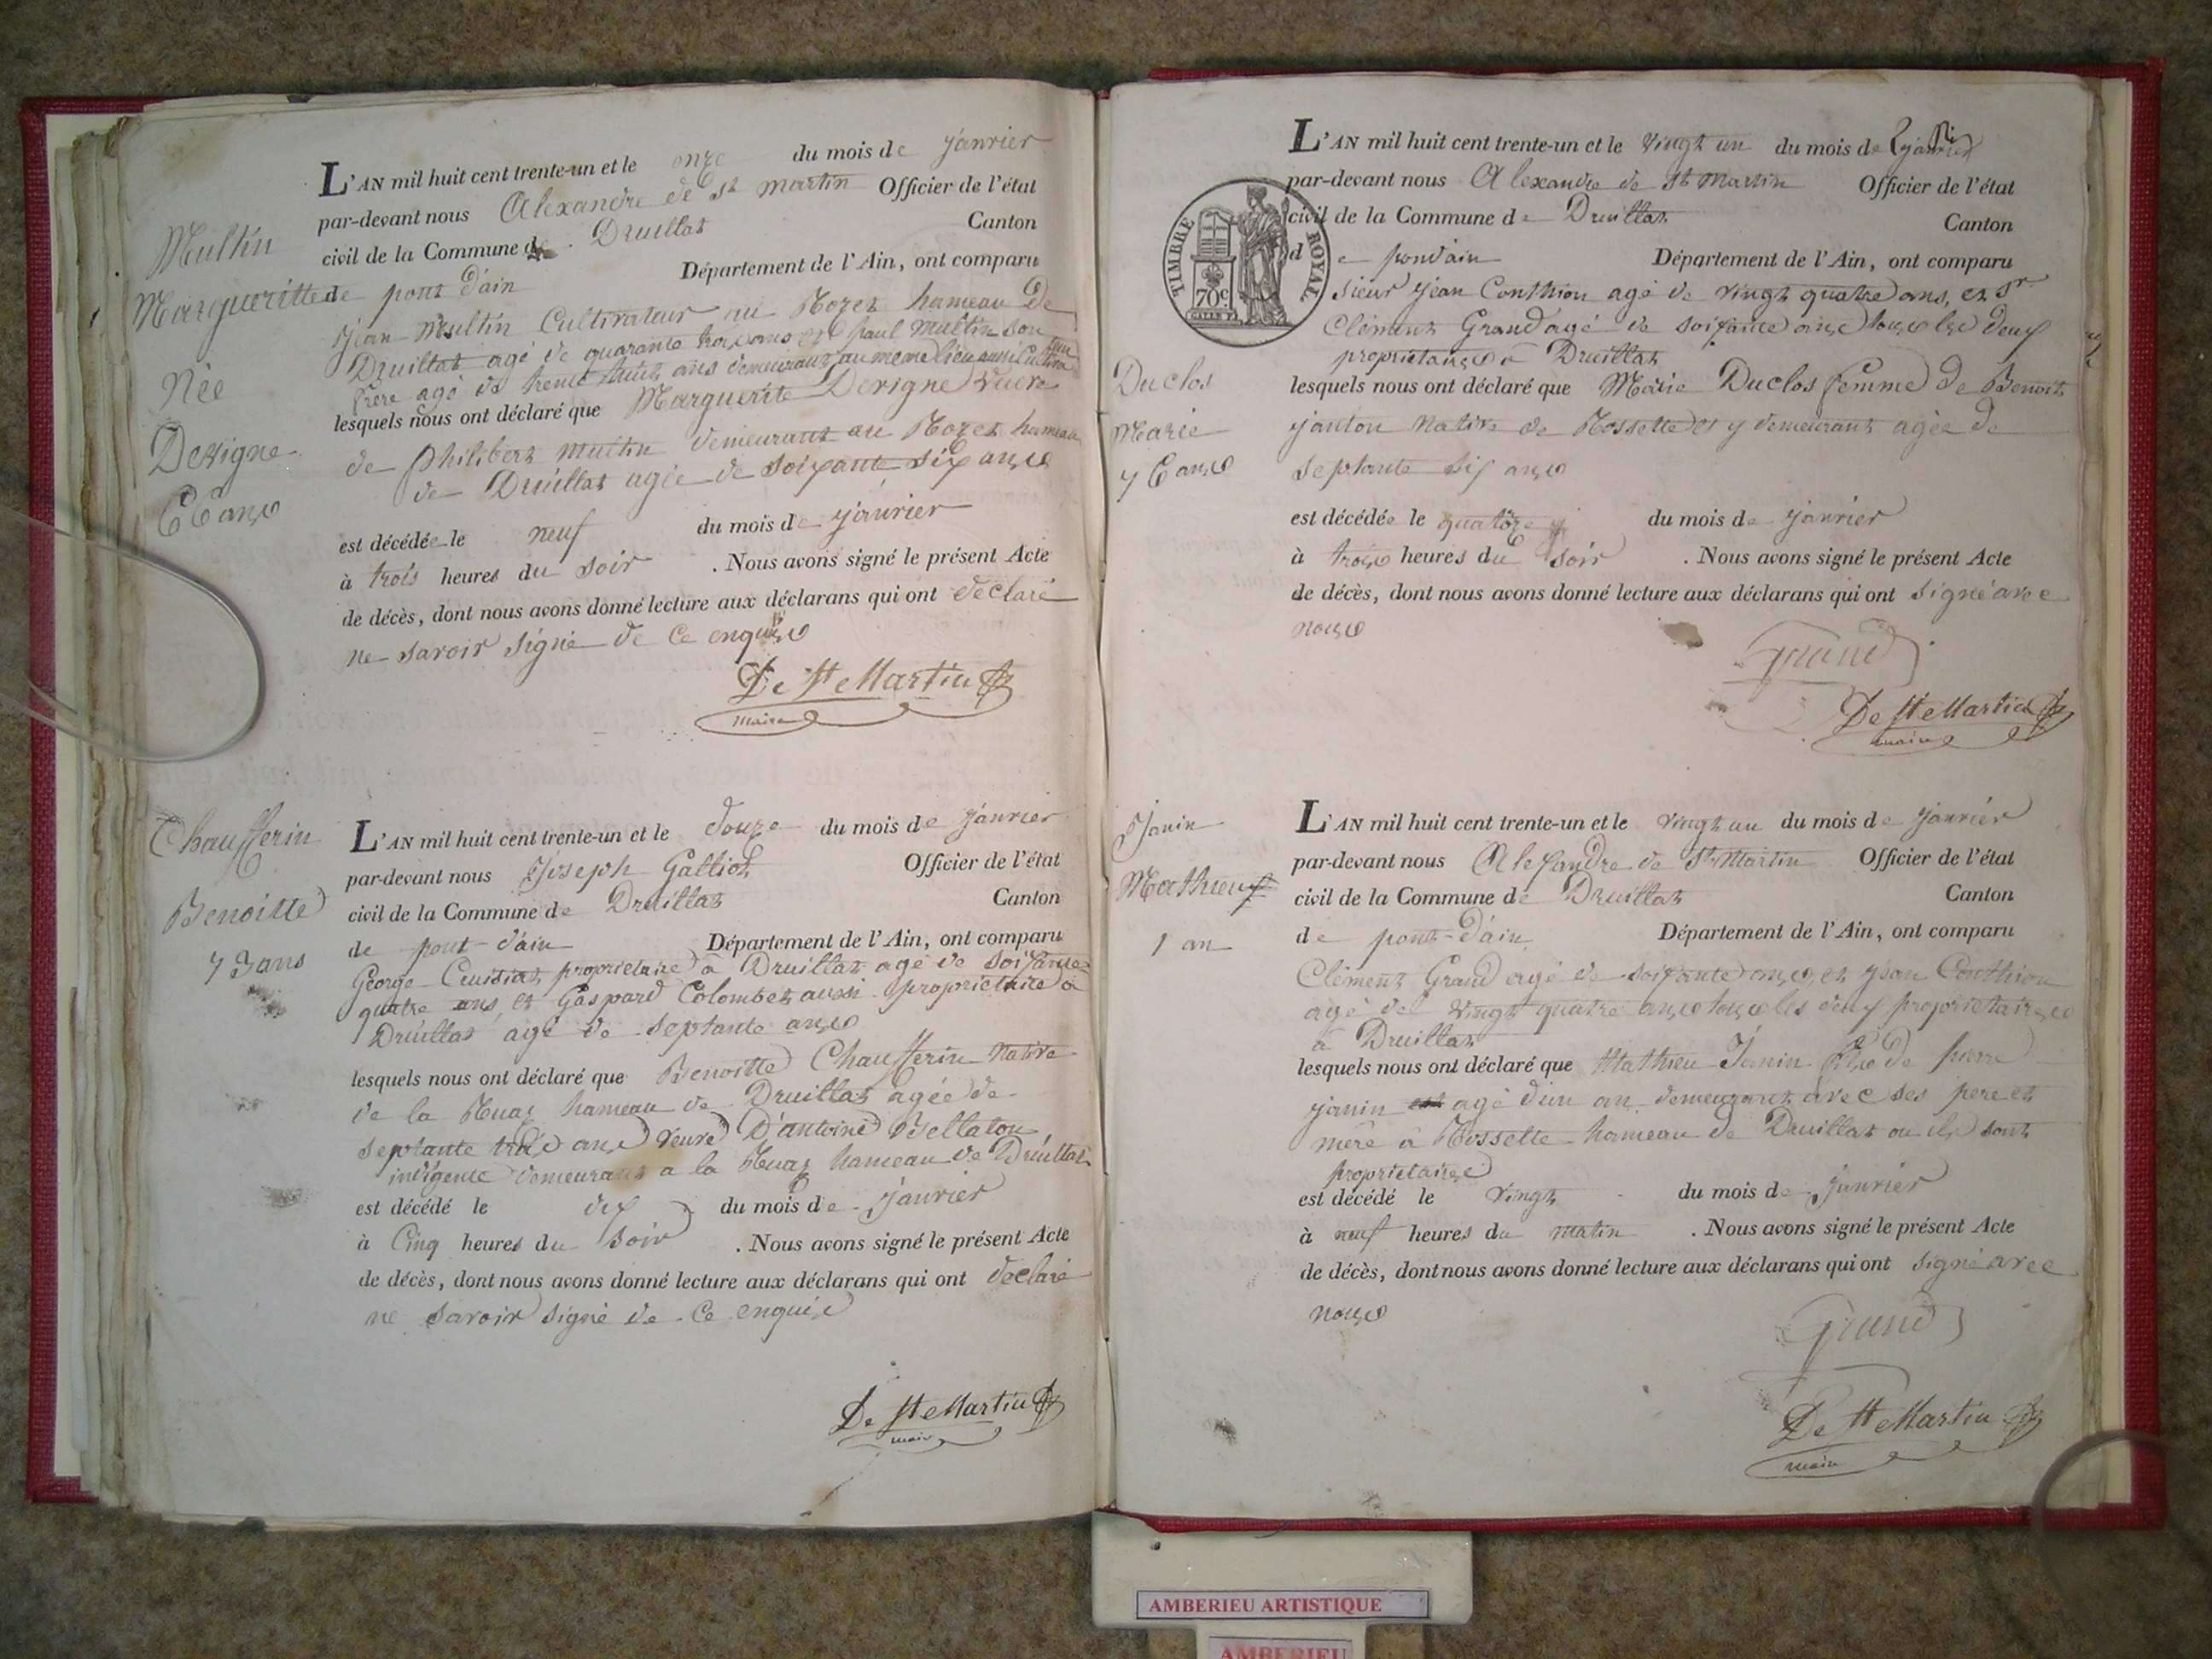 Multin
Margueritte
Née
Derigne
66 ans
L'AN mil huit cent trente-un et le onze du mois de janvier
par-devant nous Alexandre de St Martin Officier de l'état
civil de la Commune de Druillat Canton
de pont d'ain Département de l'Ain, ont comparu
Jean Multin Cultivateur au Mozet hameau de
Druillat agé de quarante trois ans et Paul Multin son
frère agé de trente huit ans demeurant au même lieu aussi
lesquels nous ont déclaré que Marguerite Derigne veuve
de philibert multin demeurant au Mozet hameau
de Druillat agée de soixante six ans
est décédée le neuf du mois de janvier
à trois heures du soir . Nous avons signé le présent Acte
de décès, dont nous avons donné lecture aux déclarans qui ont déclaré
ne savoir signé de ce enquis
De St Martin
maire
Chaufferin
Benoitte
73 ans
L'AN mil huit cent trente-un et le douze du mois de janvier
par-devant nous Joseph Galliot Officier de l'état
civil de la Commune de Druillat Canton
de pont d'ain Département de l'Ain, ont comparu
George Cruisiat proprietaire à Druillat agé de soixante
quatre ans, et Gaspard Colombet aussi proprietaire à
Druillat agé de septante ans
lesquels nous ont déclaré que Benoitte Chaufferin native
de la Ruaz hameau de Druillat agée de
septante trois ans veuve d'antoine Bellaton
indigente demeurant a la Ruaz hameau de Druillat
est décédé le dix du mois de janvier
à Cinq heures du soir . Nous avons signé le présent Acte
de décès, dont nous avons donné lecture aux déclarans qui ont déclaré
ne savoir signé de ce enquis
De St Martin
maire
TIMBRE ROYAL
70c
Duclos
Marie
76 ans
L'AN mil huit cent trente-un et le vingt un du mois de janvier
par-devant nous Alexandre de St Martin Officier de l'état
civil de la Commune de Druillat Canton
de pondain Département de l'Ain, ont comparu
sieur Jean Conthion agé de vingt quatre ans, et Sr
Clément Grand agé de soixante ans tous les deux
proprietaires à Druillat
lesquels nous ont déclaré que Marie Duclos femme de Benoit
janton native de Rossette et y demeurant agée de
septante six ans
est décédée le quatorze du mois de janvier
à trois heures du soir . Nous avons signé le présent Acte
de décès, dont nous avons donné lecture aux déclarans qui ont signé avec
nous
Grand
De St Martin
maire
Janin
Mathieu
1 an
L'AN mil huit cent trente-un et le vingt un du mois de janvier
par-devant nous Alexandre de St Martin Officier de l'état
civil de la Commune de Druillat Canton
de pont-d'ain Département de l'Ain, ont comparu
Clément Grand agé de soixante ans, et Jean Conthion
agé de vingt quatre ans tous les deux proprietaires
à Druillat
lesquels nous ont déclaré que Mathieu Janin fils de pierre
janin agé d'un an demeurant avec ses pere et
mère à Rossette hameau de Druillat ou ils sont
proprietaires
est décédé le vingt du mois de janvier
à neuf heures du matin . Nous avons signé le présent Acte
de décès, dont nous avons donné lecture aux déclarans qui ont signé avec
nous
Grand
De St Martin
maire
AMBERIEU ARTISTIQUE
AMBERIEU